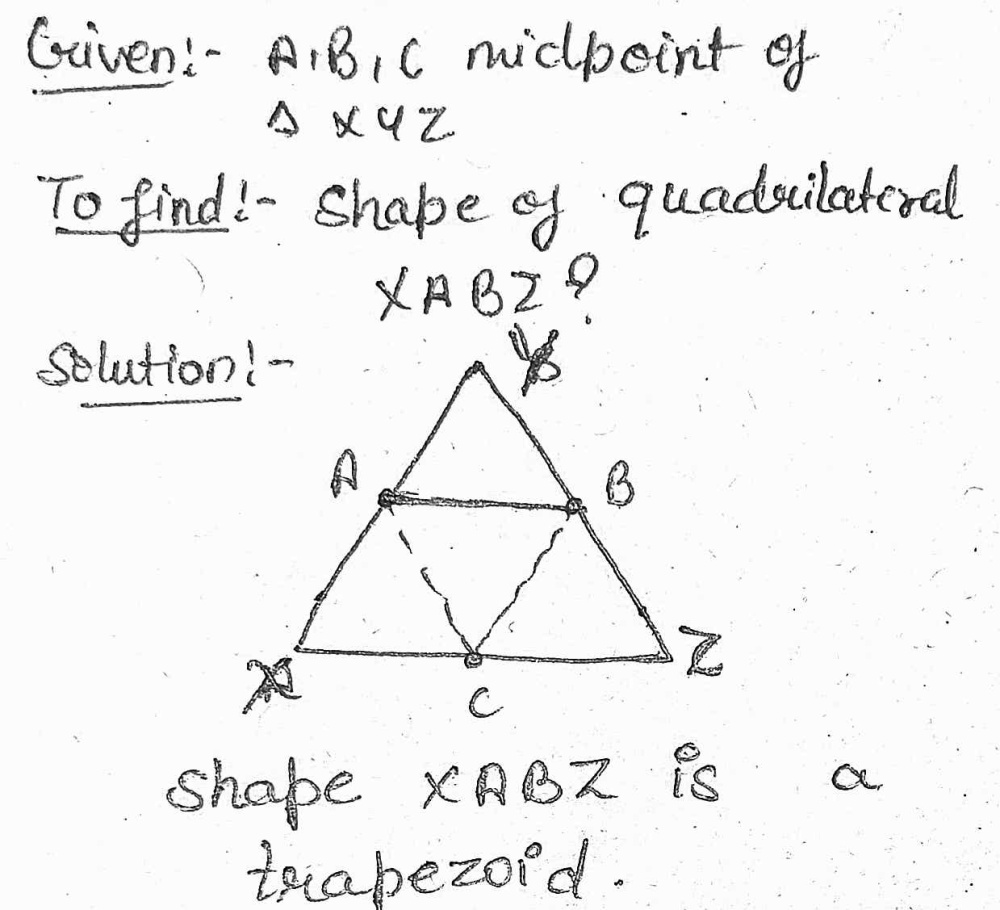 Given:- A,B,C midpoint of
Δ XYZ
To find:- shape of quadrilateral
XABZ?
Solution:-
Y
A
B
X
Z
C
shape XABZ is a
trapezoid.